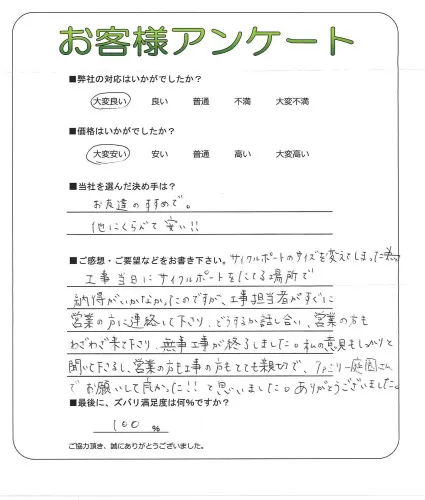 お客様アンケート
■弊社の対応はいかがでしたか?
大変良い 良い 普通 不満 大変不満
■価格はいかがでしたか?
大変安い 安い 普通 高い 大変高い
■当社を選んだ決め手は?
お友達のすすめで。
他にくらべて安い!!
■ご感想・ご要望などをお書き下さい。サイクルポートのサイズを変えてしまった為
工事当日にサイクルポートをたてる場所で
納得がいかなかったのですが、工事担当者がすぐに
営業の方に連絡して下さり、どうするか話し合い、営業の方も
わざわざ来て下さり、無事工事が終了しました。私の意見もしっかりと
聞いて下さるし、営業の方も工事の方もとても親切で、ファミリー庭園さん
でお願いして良かった!!と思いました。ありがとうございました。
■最後に、ズバリ満足度は何%ですか?
100 %
ご協力頂き、誠にありがとうございました。